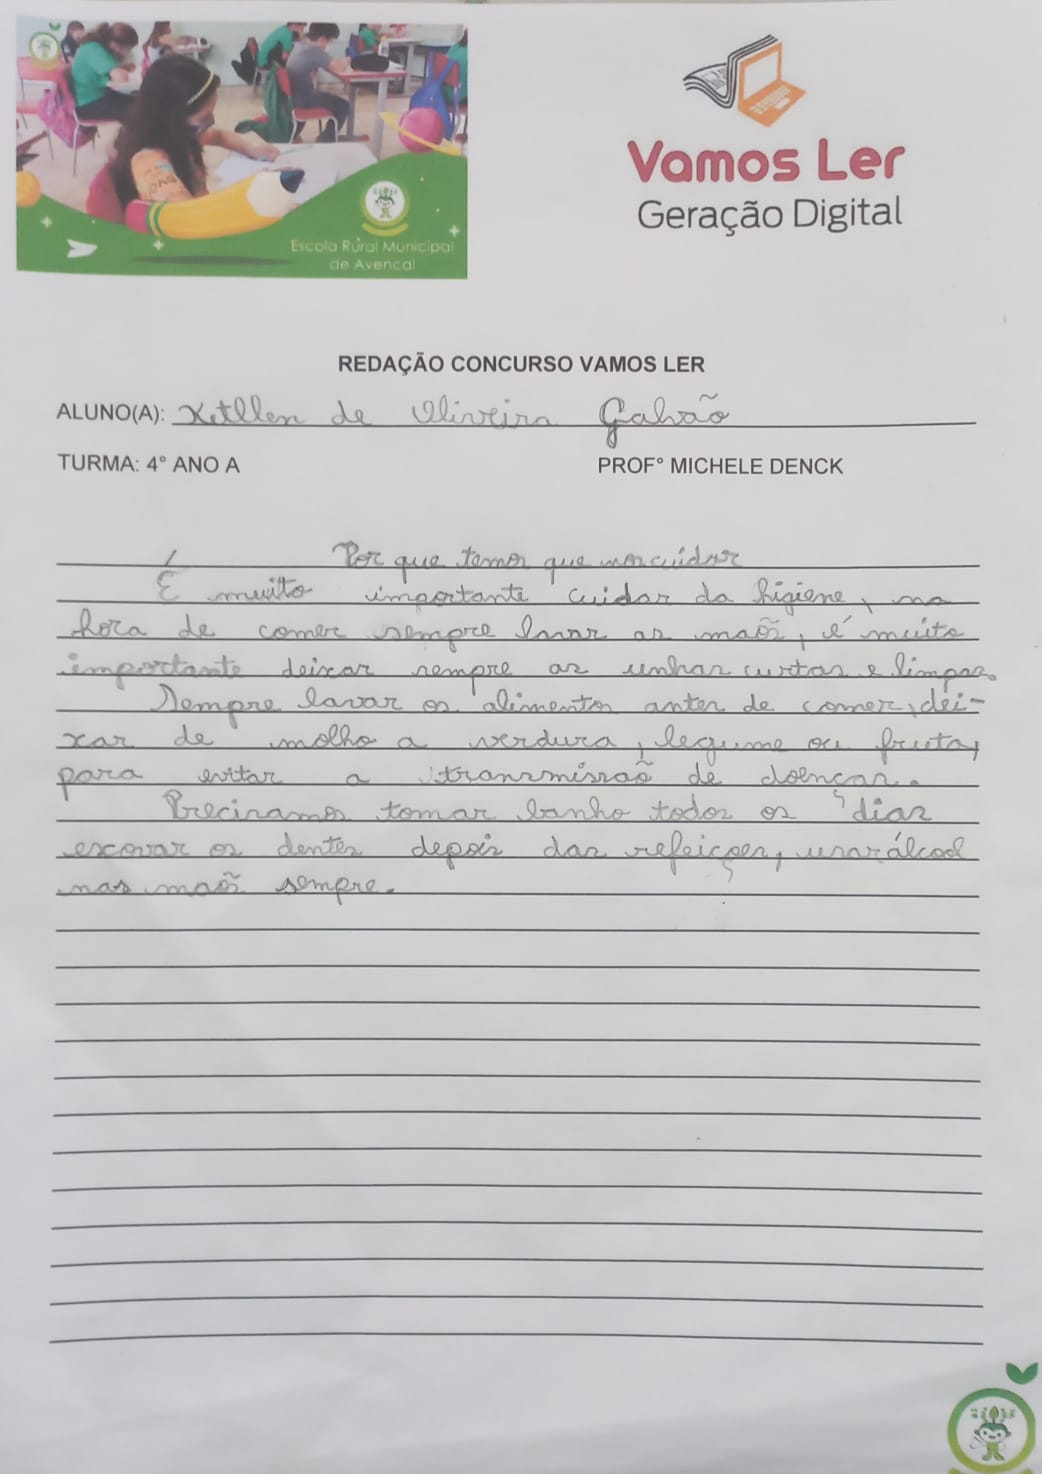 Escola Rural Municipal
de Avencal
Vamos Ler
Geração Digital
REDAÇÃO CONCURSO VAMOS LER
ALUNO(A): Ketllen de Oliveira Galvão
TURMA: 4° ANO A
PROF° MICHELE DENCK
Por que temos que nos cuidar
É muito importante cuidar da higiene, na
hora de comer sempre lavar as maõs, é muito
importante deixar sempre as unhas curtas e limpas.
Sempre lavar os alimentos antes de comer, dei-
xar de molho a verdura, legume ou fruta,
para evitar a transmissaõ de doenças.
Precisamos tomar banho todos os dias
escovar os dentes depois das refeiçoes, usar álcool
nas maõs sempre.